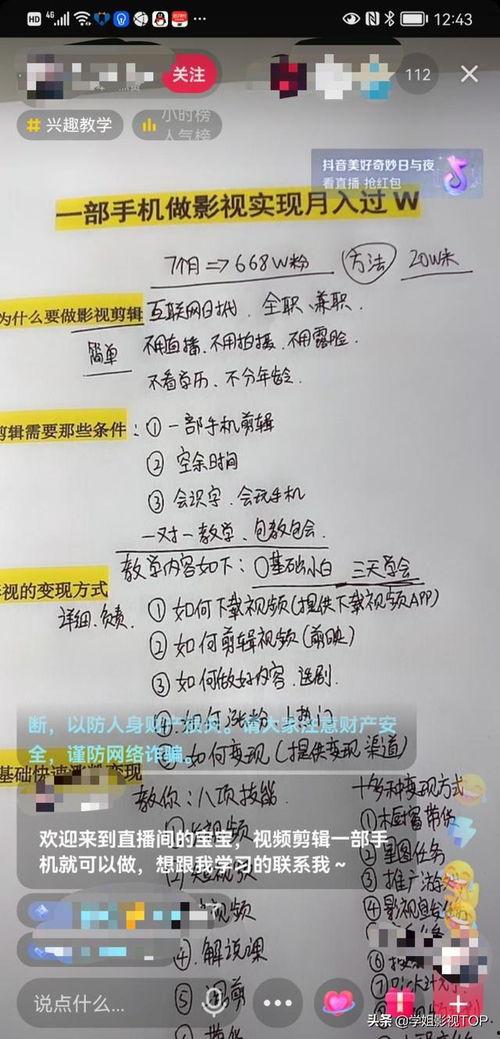 HD 4G 12:43
关注
112
兴趣教学
小时榜
人气榜
抖音美好奇妙日与夜
看直播 抢红包
一部手机做影视实现月入过 W
7个月⇒668W粉 方法 20W米
为什么要做影视剪辑 互联网时代、全职、兼职.
简单 不用直播、不用拍摄、不用露脸.
不看学历、不分年龄.
剪辑需要那些条件：①一部手机剪辑
② 空余时间
③ 会识字、会玩手机
一对一教学、包教包会.
教学内容如下：0基础小白 三天学会
视的变现方式
详细.负责. ① 如何下载视频(提供下载视频APP)
② 如何剪辑视频(剪映)
③ 如何做好内容、选剧.
④ 如何涨粉、上热门
断，以防人身财产损失。请大家注意财产安
全，谨防网络诈骗。
如何变现(提供变现渠道)
基础快速 变现
教你：八项技能. 十多种变现方式
欢迎来到直播间的宝宝，视频剪辑一部手
机就可以做，想跟我学习的联系我~
①橱窗带货
②星图任务
③推广
④影视
视频
④. 解说课
⑤
说点什么...
头条 @学姐影视TOP